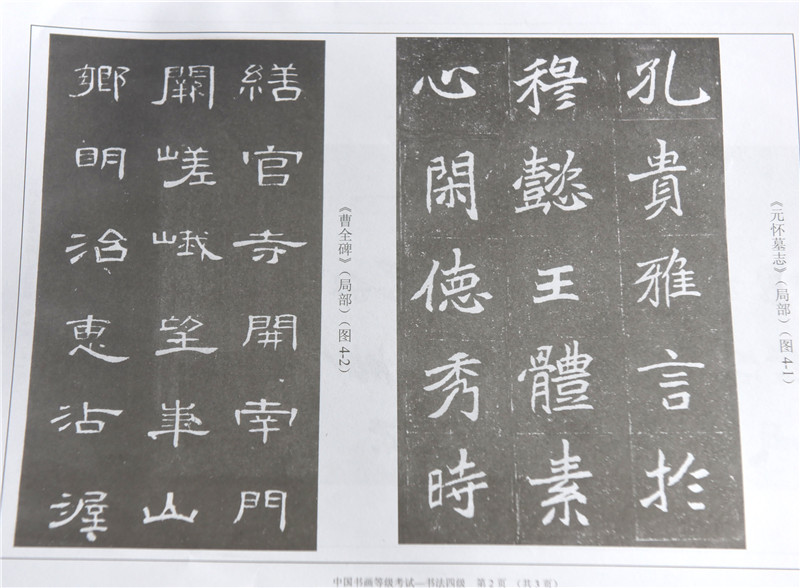 孔貴雅言於
穆懿王體素
心閑德秀時
《元怀墓志》（局部）（图4-1）
繕官寺開南門
闕嵯峨望華山
鄉明治惠沾渥
《曹全碑》（局部）（图4-2）
中国书画等级考试—书法四级 第2页 （共3页）